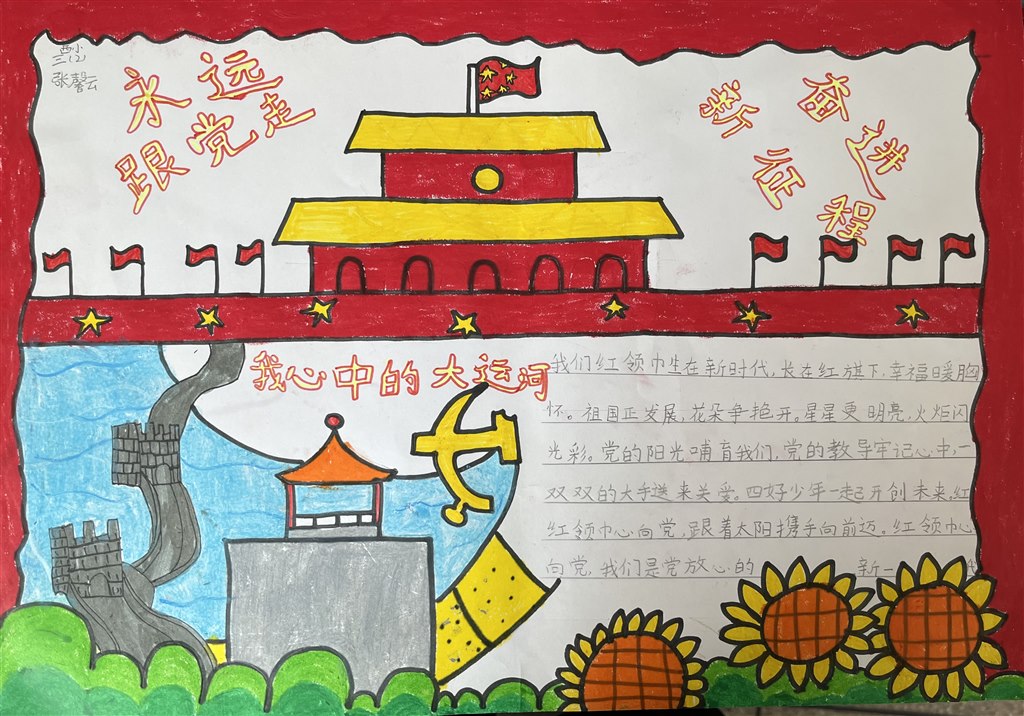 西小
三(2)
张馨云
永远
跟党走
奋进
新征程
我心中的大运河
我们红领巾生在新时代,长在红旗下,幸福暖胸
怀。祖国正发展,花朵争艳开。星星更明亮,火炬闪
光彩。党的阳光哺育我们,党的教导牢记心中,一
双双的大手送来关爱。四好少年一起开创未来,红
红领巾心向党,跟着太阳携手向前迈。红领巾心
向党,我们是党放心的 新一